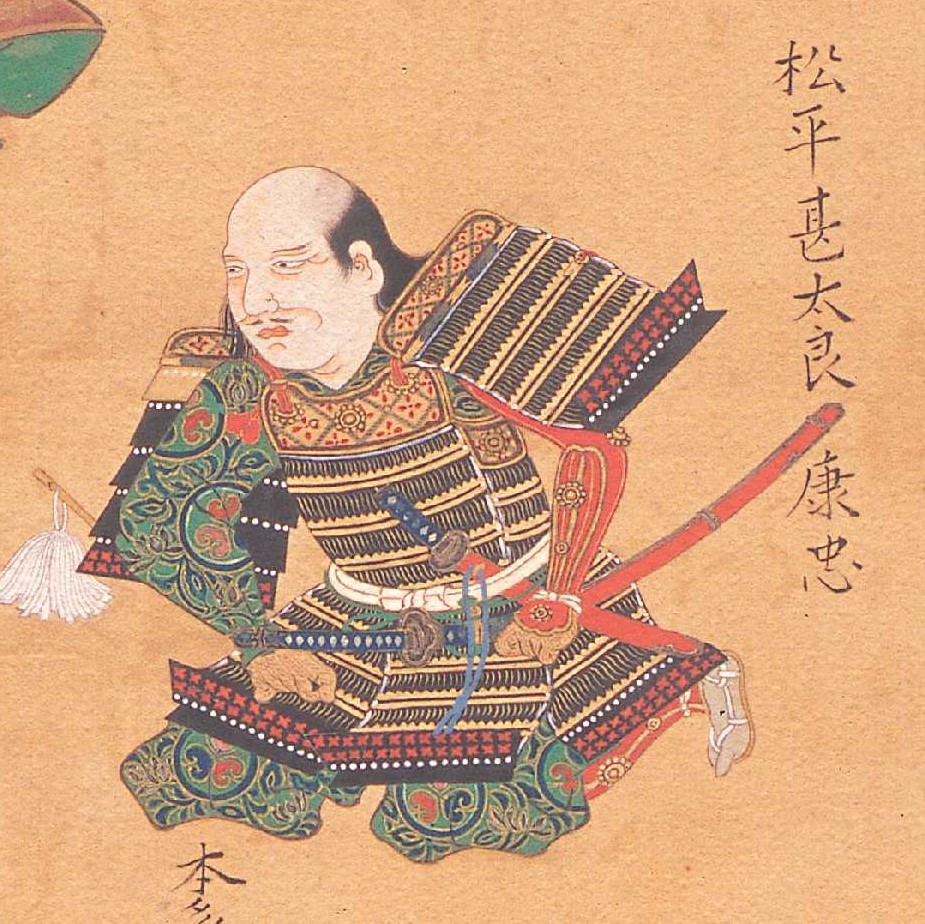 松平甚太良 康忠
本